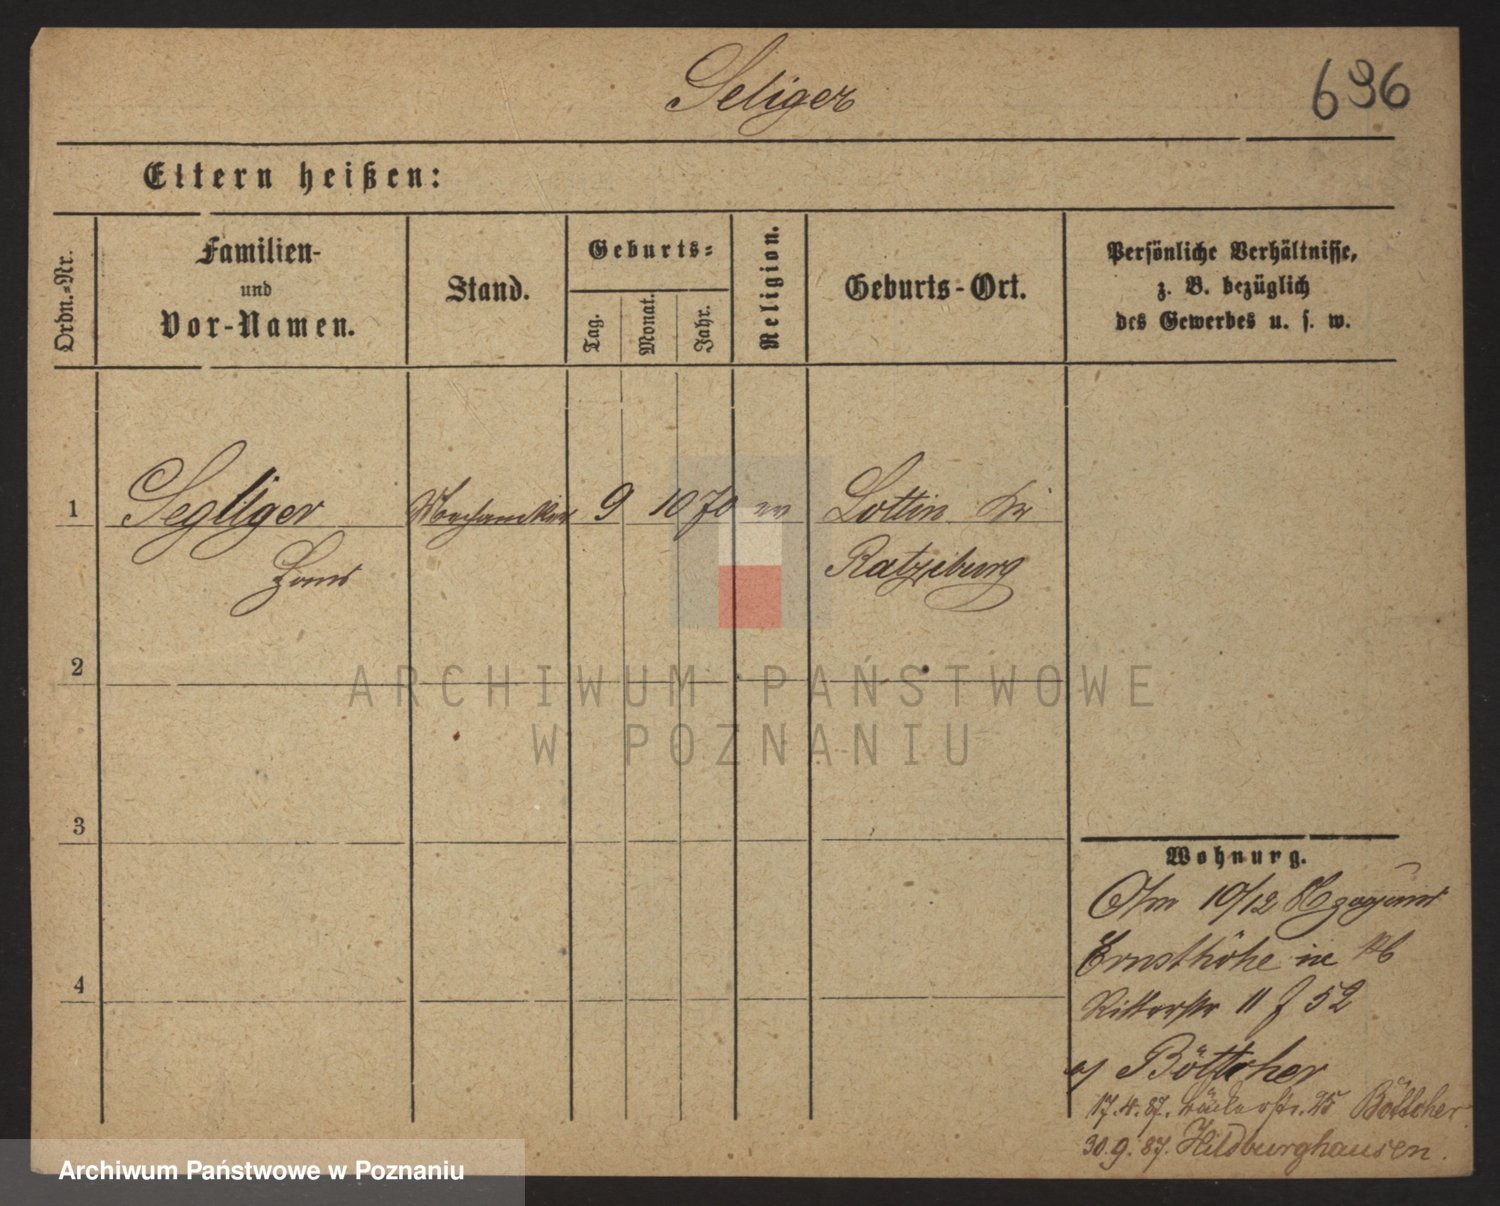 Seliger
696
Eltern heißen:
Ordn.-Nr.
Familien-
und
Vor-Namen.
Stand.
Geburts-
Tag.
Monat.
Jahr.
Religion.
Geburts-Ort.
Persönliche Verhältnisse,
z. B. bezüglich
des Gewerbes u. s. w.
1
Hans
9 10 70 ev
Lottin Kr
Ratzeburg
2
ARCHIWUM PAŃSTWOWE
W POZNANIU
3
4
Wohnung.
10/12
Ernsthöhe in
Ritterstr 11 f 52
Böttcher
17.4.87. Bäckerstr. 25 Böttcher
30.9.87. Hildburghausen.
Archiwum Państwowe w Poznaniu